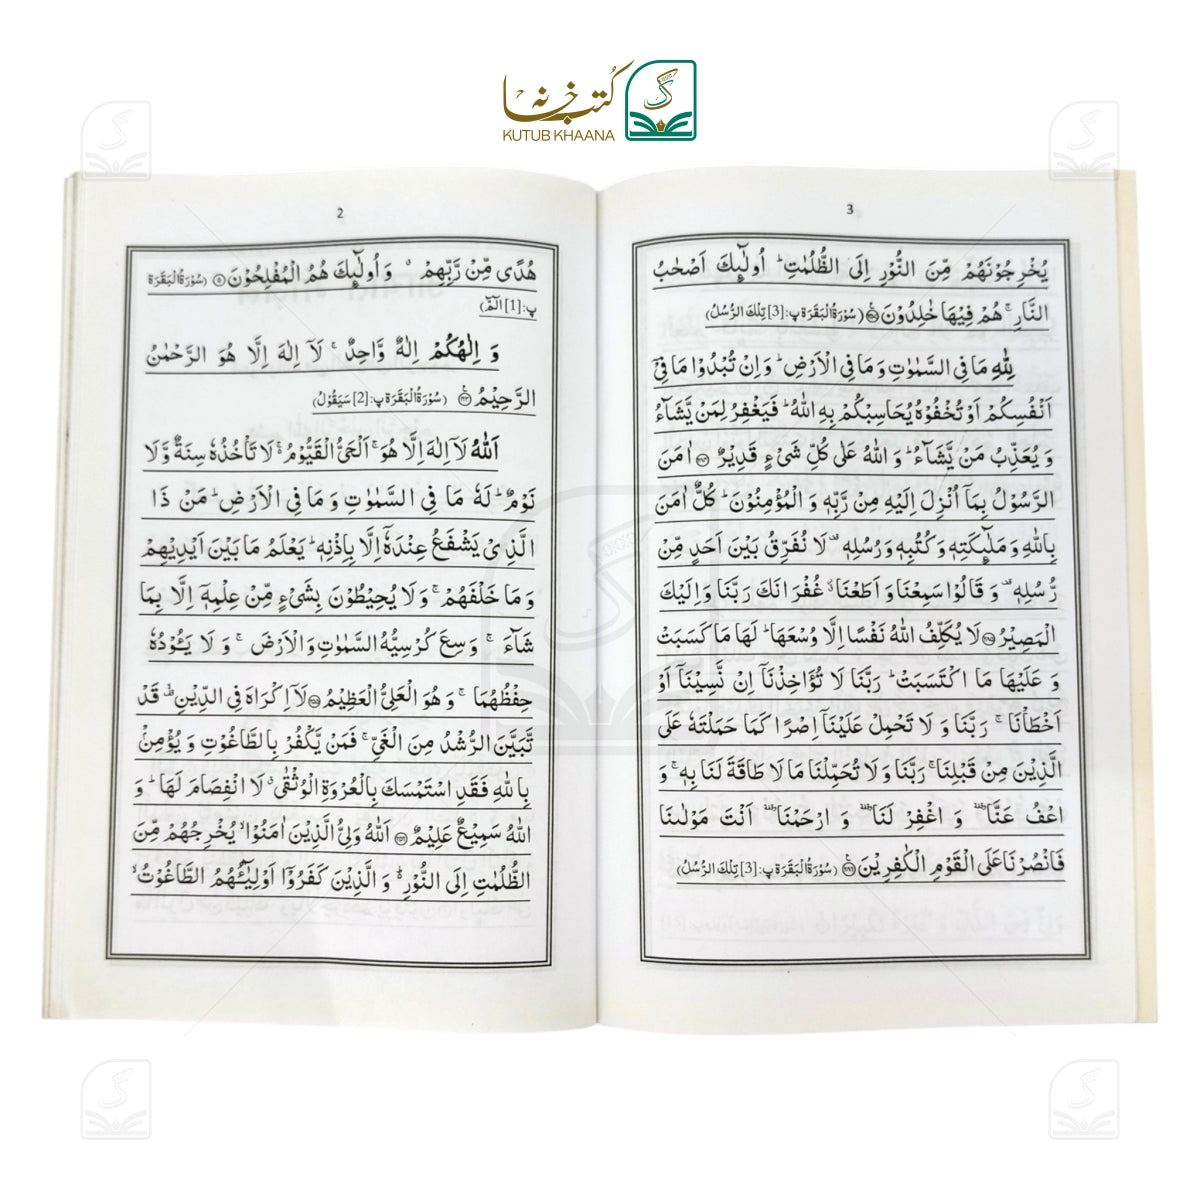 کتب خانہ
KUTUB KHAANA
2
هُدًى مِّنْ رَّبِّهِمْ ۙ وَ اُولٰٓىِٕكَ هُمُ الْمُفْلِحُوْنَ ۝۵ (سُوْرَةُ الْبَقَرَة
پ:[1] الٓمّٓ)
وَ اِلٰهُكُمْ اِلٰهٌ وَّاحِدٌ ۚ لَاۤ اِلٰهَ اِلَّا هُوَ الرَّحْمٰنُ
الرَّحِیْمُ ۝۱۶۳ (سُوْرَةُ الْبَقَرَة پ:[2] سَیَقُوْلُ)
اَللّٰهُ لَاۤ اِلٰهَ اِلَّا هُوَ ۚ اَلْحَیُّ الْقَیُّوْمُ ۚ۬ لَا تَاْخُذُهٗ سِنَةٌ وَّ لَا
نَوْمٌ ؕ لَهٗ مَا فِی السَّمٰوٰتِ وَ مَا فِی الْاَرْضِ ؕ مَنْ ذَا
الَّذِیْ یَشْفَعُ عِنْدَهٗۤ اِلَّا بِاِذْنِهٖ ؕ یَعْلَمُ مَا بَیْنَ اَیْدِیْهِمْ
وَ مَا خَلْفَهُمْ ۚ وَ لَا یُحِیْطُوْنَ بِشَیْءٍ مِّنْ عِلْمِهٖۤ اِلَّا بِمَا
شَآءَ ۚ وَسِعَ كُرْسِیُّهُ السَّمٰوٰتِ وَ الْاَرْضَ ۚ وَ لَا یَـُٔوْدُهٗ
حِفْظُهُمَا ۚ وَ هُوَ الْعَلِیُّ الْعَظِیْمُ ۝۲۵۵ لَاۤ اِكْرَاهَ فِی الدِّیْنِ ۙ۫ قَدْ
تَّبَیَّنَ الرُّشْدُ مِنَ الْغَیِّ ۚ فَمَنْ یَّكْفُرْ بِالطَّاغُوْتِ وَ یُؤْمِنْۢ
بِاللّٰهِ فَقَدِ اسْتَمْسَكَ بِالْعُرْوَةِ الْوُثْقٰی ۗ لَا انْفِصَامَ لَهَا ؕ وَ
اللّٰهُ سَمِیْعٌ عَلِیْمٌ ۝۲۵۶ اَللّٰهُ وَلِیُّ الَّذِیْنَ اٰمَنُوْا ۙ یُخْرِجُهُمْ مِّنَ
الظُّلُمٰتِ اِلَی النُّوْرِ ؕ۬ وَ الَّذِیْنَ كَفَرُوْۤا اَوْلِیٰٓـُٔهُمُ الطَّاغُوْتُ ۙ
3
یُخْرِجُوْنَهُمْ مِّنَ النُّوْرِ اِلَی الظُّلُمٰتِ ؕ اُولٰٓىِٕكَ اَصْحٰبُ
النَّارِ ۚ هُمْ فِیْهَا خٰلِدُوْنَ ۝۲۵۷ (سُوْرَةُ الْبَقَرَة پ:[3] تِلْكَ الرُّسُلُ)
لِلّٰهِ مَا فِی السَّمٰوٰتِ وَ مَا فِی الْاَرْضِ ؕ وَ اِنْ تُبْدُوْا مَا فِیْۤ
اَنْفُسِكُمْ اَوْ تُخْفُوْهُ یُحَاسِبْكُمْ بِهِ اللّٰهُ ؕ فَیَغْفِرُ لِمَنْ یَّشَآءُ
وَ یُعَذِّبُ مَنْ یَّشَآءُ ؕ وَ اللّٰهُ عَلٰی كُلِّ شَیْءٍ قَدِیْرٌ ۝۲۸۴ اٰمَنَ
الرَّسُوْلُ بِمَاۤ اُنْزِلَ اِلَیْهِ مِنْ رَّبِّهٖ وَ الْمُؤْمِنُوْنَ ؕ كُلٌّ اٰمَنَ
بِاللّٰهِ وَ مَلٰٓىِٕكَتِهٖ وَ كُتُبِهٖ وَ رُسُلِهٖ ۫ لَا نُفَرِّقُ بَیْنَ اَحَدٍ مِّنْ
رُّسُلِهٖ ۫ وَ قَالُوْا سَمِعْنَا وَ اَطَعْنَا ۗ۫ غُفْرَانَكَ رَبَّنَا وَ اِلَیْكَ
الْمَصِیْرُ ۝۲۸۵ لَا یُكَلِّفُ اللّٰهُ نَفْسًا اِلَّا وُسْعَهَا ؕ لَهَا مَا كَسَبَتْ
وَ عَلَیْهَا مَا اكْتَسَبَتْ ؕ رَبَّنَا لَا تُؤَاخِذْنَاۤ اِنْ نَّسِیْنَاۤ اَوْ
اَخْطَاْنَا ۚ رَبَّنَا وَ لَا تَحْمِلْ عَلَیْنَاۤ اِصْرًا كَمَا حَمَلْتَهٗ عَلَی
الَّذِیْنَ مِنْ قَبْلِنَا ۚ رَبَّنَا وَ لَا تُحَمِّلْنَا مَا لَا طَاقَةَ لَنَا بِهٖ ۚ وَ
اعْفُ عَنَّا ۥ وَ اغْفِرْ لَنَا ۥ وَ ارْحَمْنَا ۥ اَنْتَ مَوْلٰىنَا
فَانْصُرْنَا عَلَی الْقَوْمِ الْكٰفِرِیْنَ ۝۲۸۶ (سُوْرَةُ الْبَقَرَة پ:[3] تِلْكَ الرُّسُلُ)